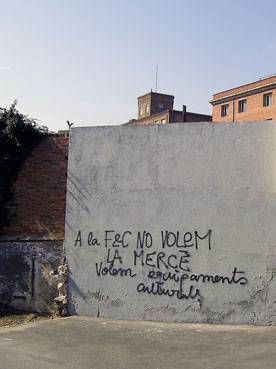 A la F&C NO VOLEM
LA MERCÈ
Volem equipaments
culturals